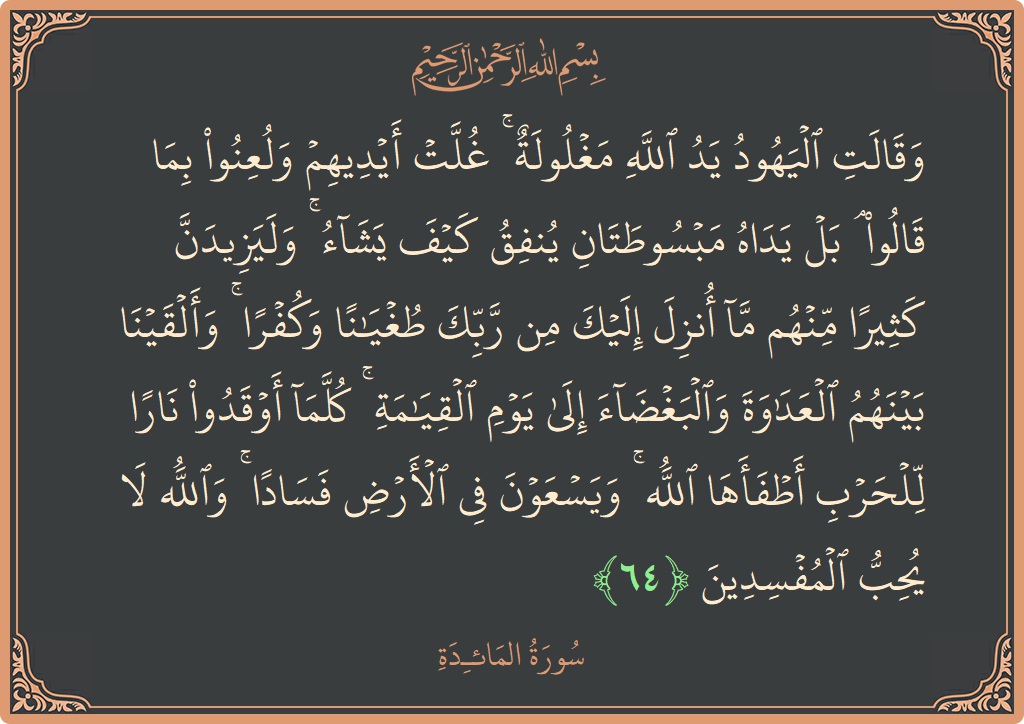 بِسْمِ اللَّهِ الرَّحْمَٰنِ الرَّحِيمِ
وَقَالَتِ ٱلْيَهُودُ يَدُ ٱللَّهِ مَغْلُولَةٌ ۚ غُلَّتْ أَيْدِيهِمْ وَلُعِنُوا۟ بِمَا
قَالُوا۟ ۘ بَلْ يَدَاهُ مَبْسُوطَتَانِ يُنفِقُ كَيْفَ يَشَآءُ ۚ وَلَيَزِيدَنَّ
كَثِيرًا مِّنْهُم مَّآ أُنزِلَ إِلَيْكَ مِن رَّبِّكَ طُغْيَٰنًا وَكُفْرًا ۚ وَأَلْقَيْنَا
بَيْنَهُمُ ٱلْعَدَٰوَةَ وَٱلْبَغْضَآءَ إِلَىٰ يَوْمِ ٱلْقِيَٰمَةِ ۚ كُلَّمَآ أَوْقَدُوا۟ نَارًا
لِّلْحَرْبِ أَطْفَأَهَا ٱللَّهُ ۚ وَيَسْعَوْنَ فِى ٱلْأَرْضِ فَسَادًا ۚ وَٱللَّهُ لَا
يُحِبُّ ٱلْمُفْسِدِينَ ﴿٦٤﴾
سُورَةُ المَائِدَةِ